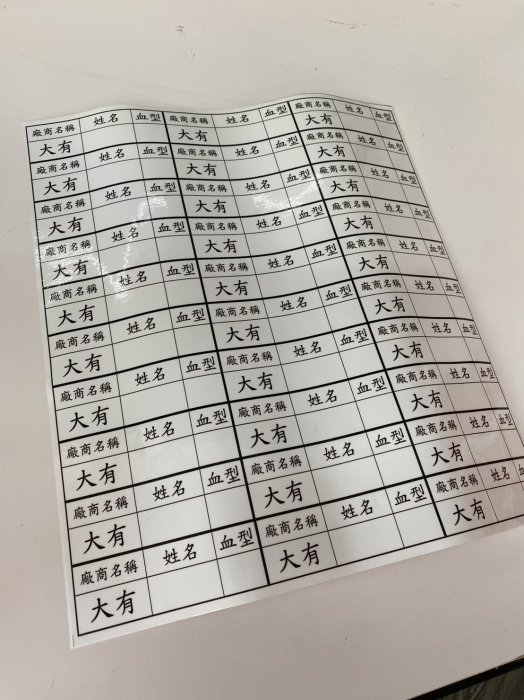 廠商名稱 姓名 血型 廠商名稱 姓名 血型 廠商名稱 姓名 血型
大有 大有 大有
廠商名稱 姓名 血型 廠商名稱 姓名 血型 廠商名稱 姓名 血型
大有 大有 大有
廠商名稱 姓名 血型 廠商名稱 姓名 血型 廠商名稱 姓名 血型
大有 大有 大有
廠商名稱 姓名 血型 廠商名稱 姓名 血型 廠商名稱 姓名 血型
大有 大有 大有
廠商名稱 姓名 血型 廠商名稱 姓名 血型 廠商名稱 姓名 血型
大有 大有 大有
廠商名稱 姓名 血型 廠商名稱 姓名 血型 廠商名稱 姓名 血型
大有 大有 大有
廠商名稱 姓名 血型 廠商名稱 姓名 血型 廠商名稱 姓名 血型
大有 大有 大有
廠商名稱 姓名 血型 廠商名稱 姓名 血型 廠商名稱 姓名 血型
大有 大有 大有
廠商名稱 姓名 血型 廠商名稱 姓名 血型 廠商名稱 姓名
大有 大有 大有
廠商名稱 姓名 血型 廠商名稱 姓名 血型 廠商名稱 姓名
大有 大有 大有